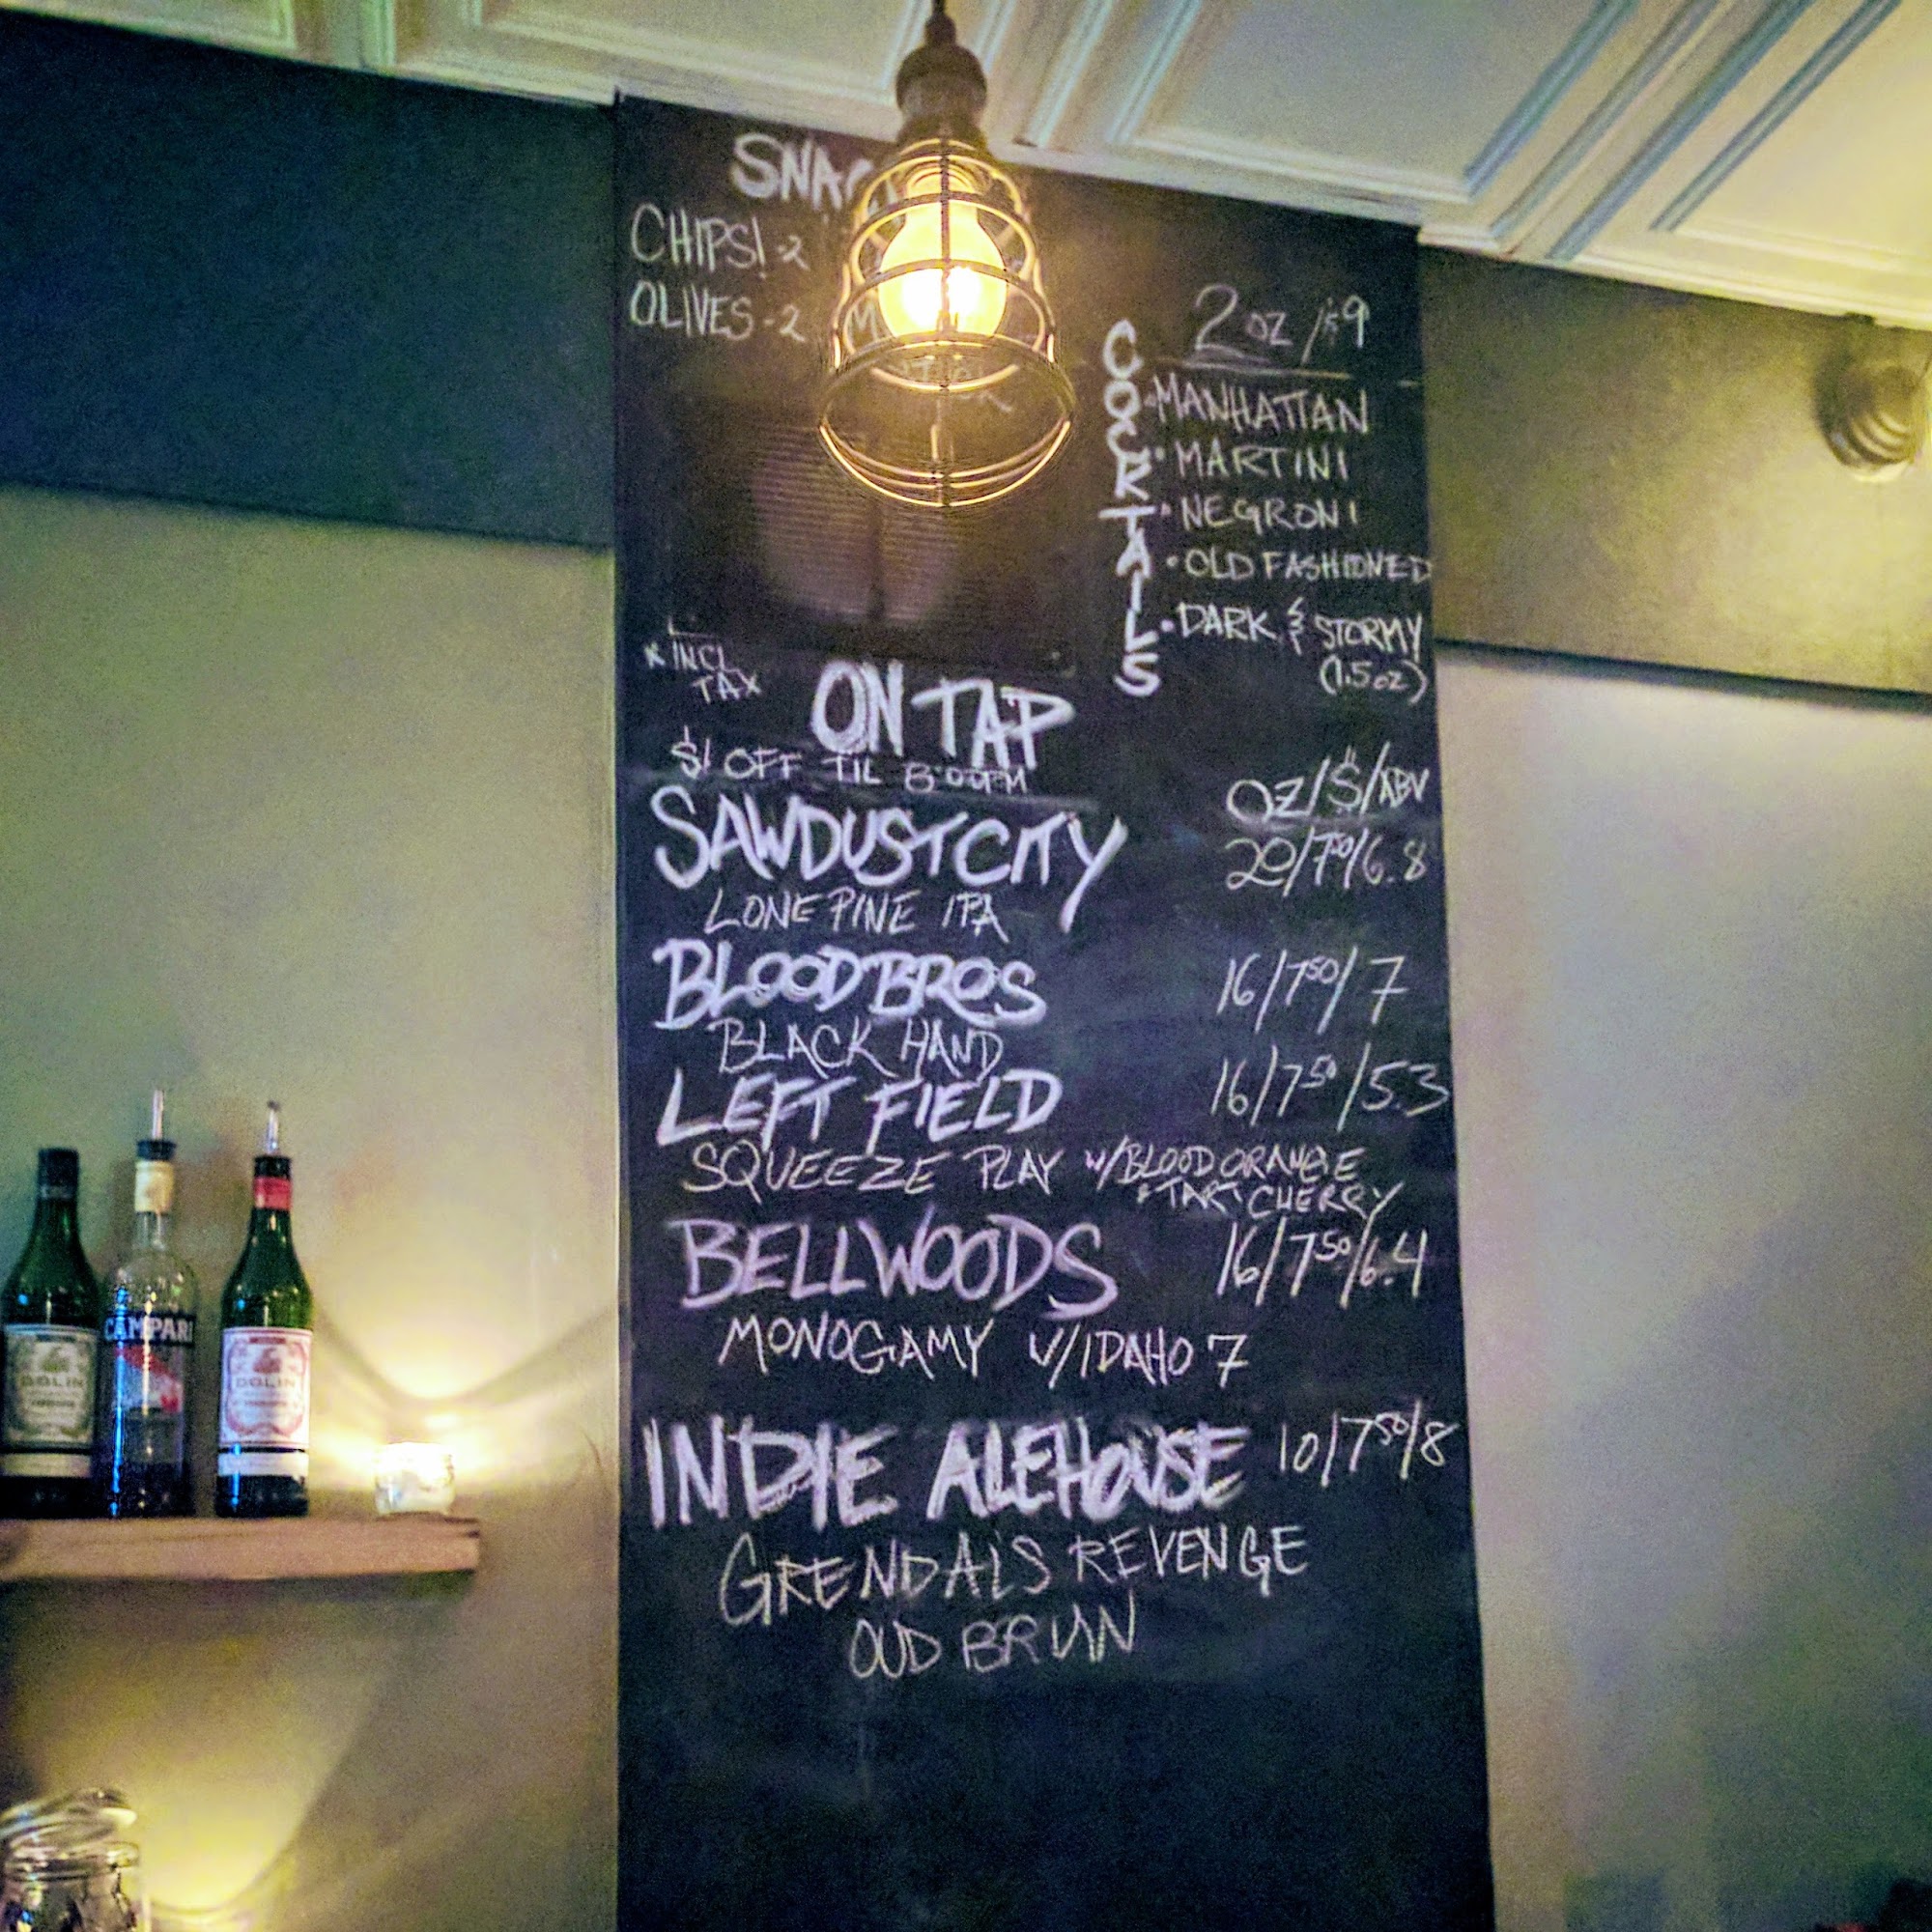 CHIPS! -2
OLIVES -2
COCKTAILS
2 OZ / $9
• MANHATTAN
• MARTINI
• NEGRONI
• OLD FASHIONED
• DARK & STORMY
(1.5oz)
* INCL
TAX
ON TAP
$1 OFF TIL 8:00PM
OZ/$/ABV
SAWDUST CITY 20/7⁵⁰/6.8
LONE PINE IPA
BLOOD BROS 16/7⁵⁰/7
BLACK HAND
LEFT FIELD 16/7⁵⁰/5.3
SQUEEZE PLAY w/BLOOD ORANGE
& TART CHERRY
BELLWOODS 16/7⁵⁰/6.4
MONOGAMY W/IDAHO 7
INDIE ALEHOUSE 10/7⁵⁰/8
GRENDALS REVENGE
OUD BRUIN
DOLIN
CAMPARI
DOLIN